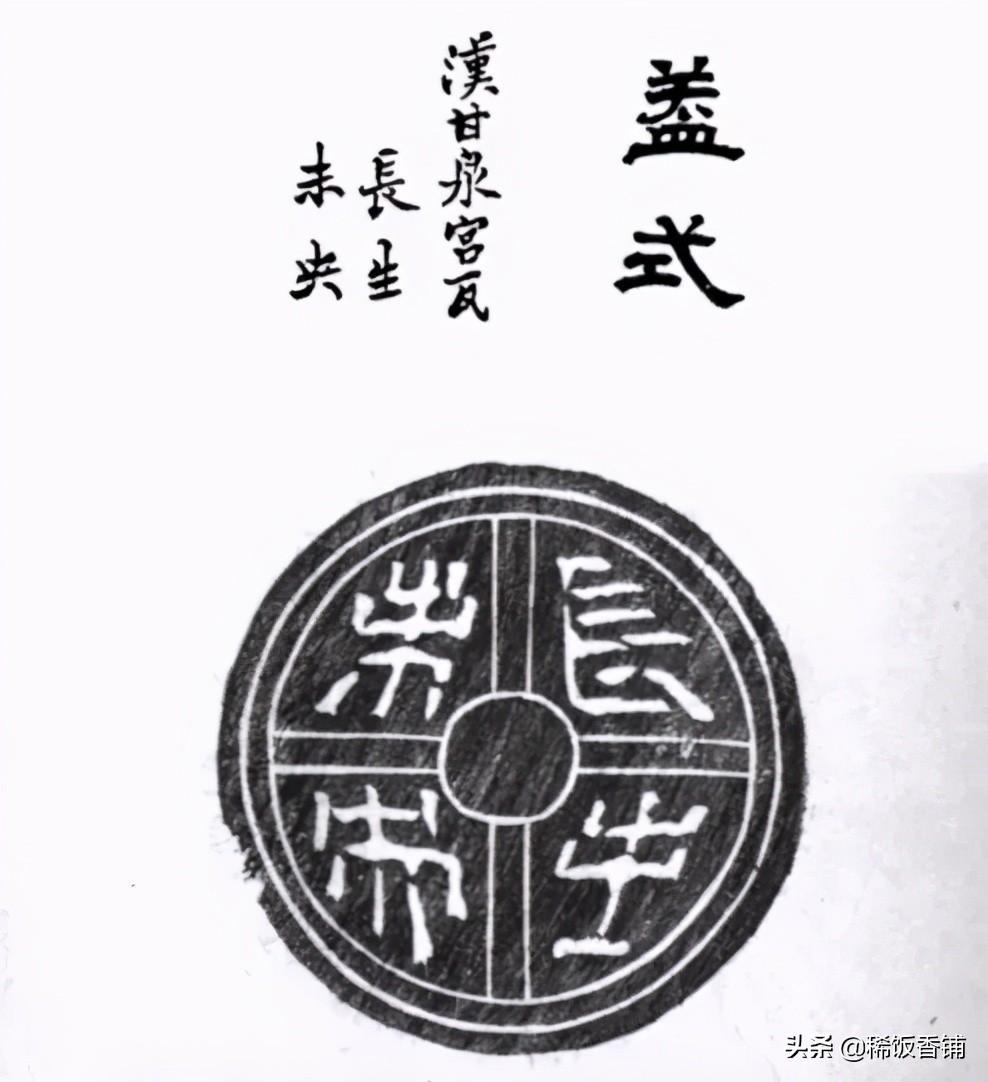 蓋式
漢甘泉宮瓦
長生
未央
長生
未央
头条 @稀饭香铺